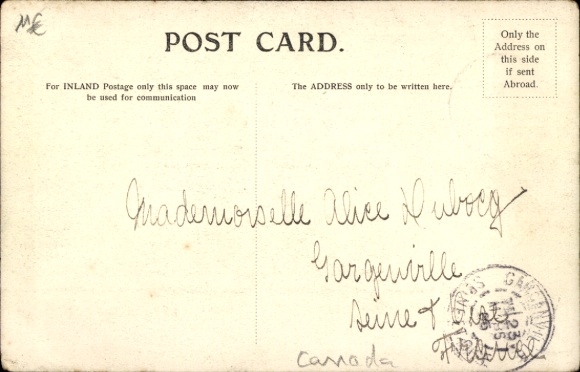 POST CARD.
Only the
Address on
this side
if sent
Abroad.
For INLAND Postage only this space may now
be used for communication
The ADDRESS only to be written here.
Mademoiselle Alice Dubocq
Gargenville
Seine & Oise
France
Canada